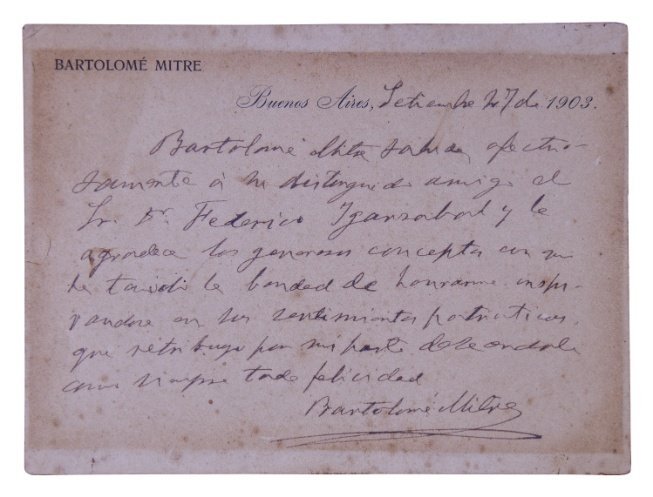 BARTOLOMÉ MITRE
Buenos Aires, Setiembre 27 de 1903.
Bartolomé Mitre saluda afectuo-
samente á su distinguido amigo el
Sr. Dr. Federico y le
agradece los generosos conceptos con que
ha tenido la bondad de honrarme, inspi-
randose en sus sentimientos patrioticos,
que retribuyo por mi parte deseandole
como siempre toda felicidad
Bartolomé Mitre